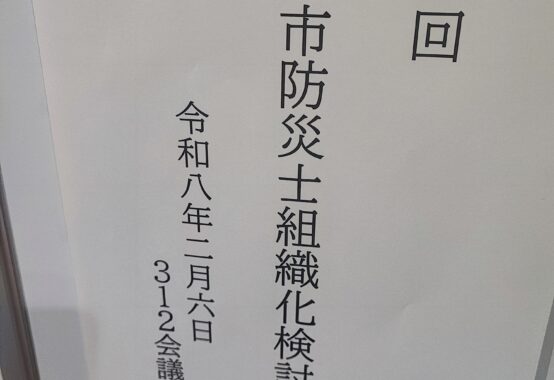 回
市防災士組織化検討
令和八年二月六日
312会議